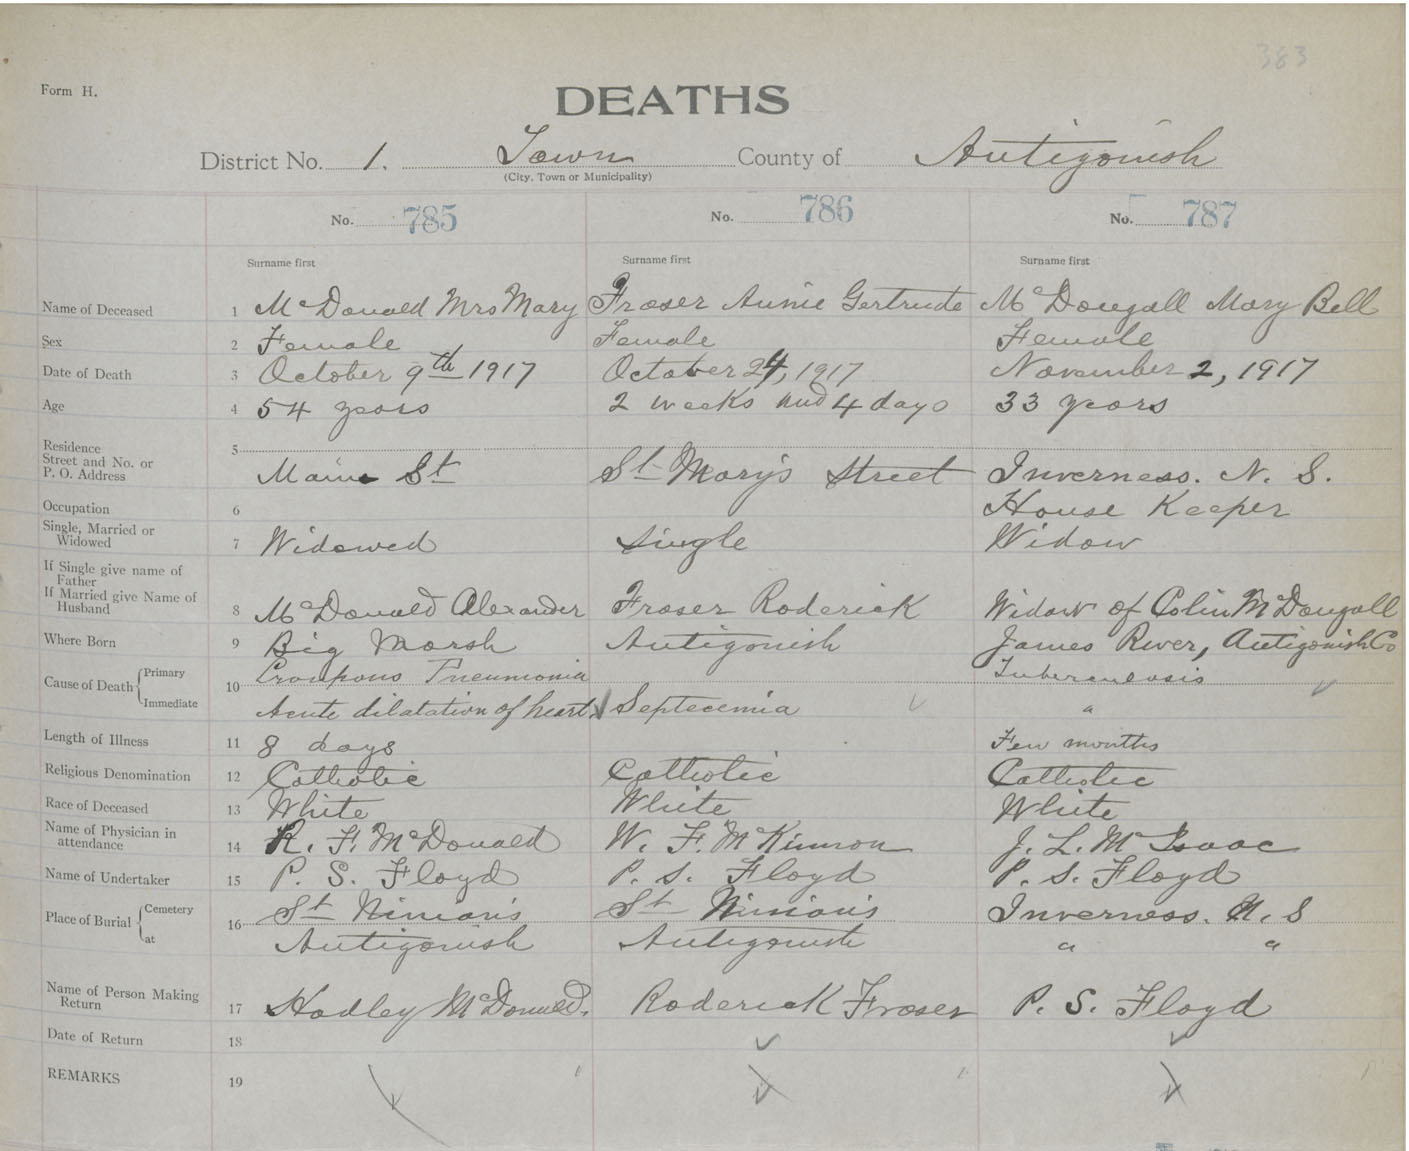 383
Form H.
DEATHS
District No. 1. Town County of Antigonish
(City, Town or Municipality)
No. 785 No. 786 No. 787
Surname first Surname first Surname first
Name of Deceased 1 McDonald Mrs Mary Fraser Annie Gertrude McDougall Mary Bell
Sex 2 Female Female Female
Date of Death 3 October 9th 1917 October 24, 1917 November 2, 1917
Age 4 54 years 2 weeks and 4 days 33 years
Residence 5
Street and No. or
P. O. Address Main St St Mary's Street Inverness. N. S.
Occupation 6 House Keeper
Single, Married or
Widowed 7 Widowed Single Widow
If Single give name of
Father
If Married give Name of
Husband 8 McDonald Alexander Fraser Roderick Widow of Colin McDougall
Where Born 9 Big Marsh Antigonish James River, Antigonish Co
Cause of Death Primary 10 Croupous Pneumonia Tuberculosis
Immediate Acute dilatation of heart. Septecemia "
Length of Illness 11 8 days Few months
Religious Denomination 12 Catholic Catholic Catholic
Race of Deceased 13 White White White
Name of Physician in
attendance 14 R. F. McDonald W. F. McKinnon J. L. McIsaac
Name of Undertaker 15 P. S. Floyd P. S. Floyd P. S. Floyd
Place of Burial Cemetery 16 St Ninian's St Ninian's Inverness. N. S
at Antigonish Antigonish " "
Name of Person Making
Return 17 Hadley McDonald. Roderick Fraser P. S. Floyd
Date of Return 18
REMARKS 19